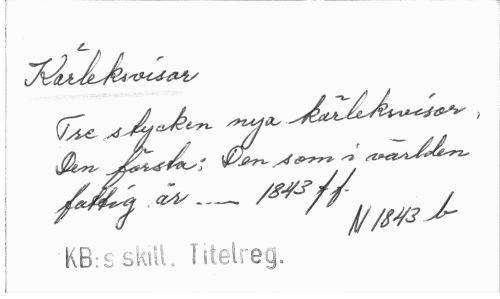 Kärleksvisor
Tre stycken nya kärleksvisor,
Den första: Den som i världen
fattig är ---- 1843 ff.
N 1843 b
KB:s skill. Titelreg.